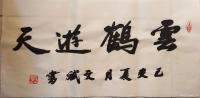 雲鶴遊天
己亥夏月文斌書